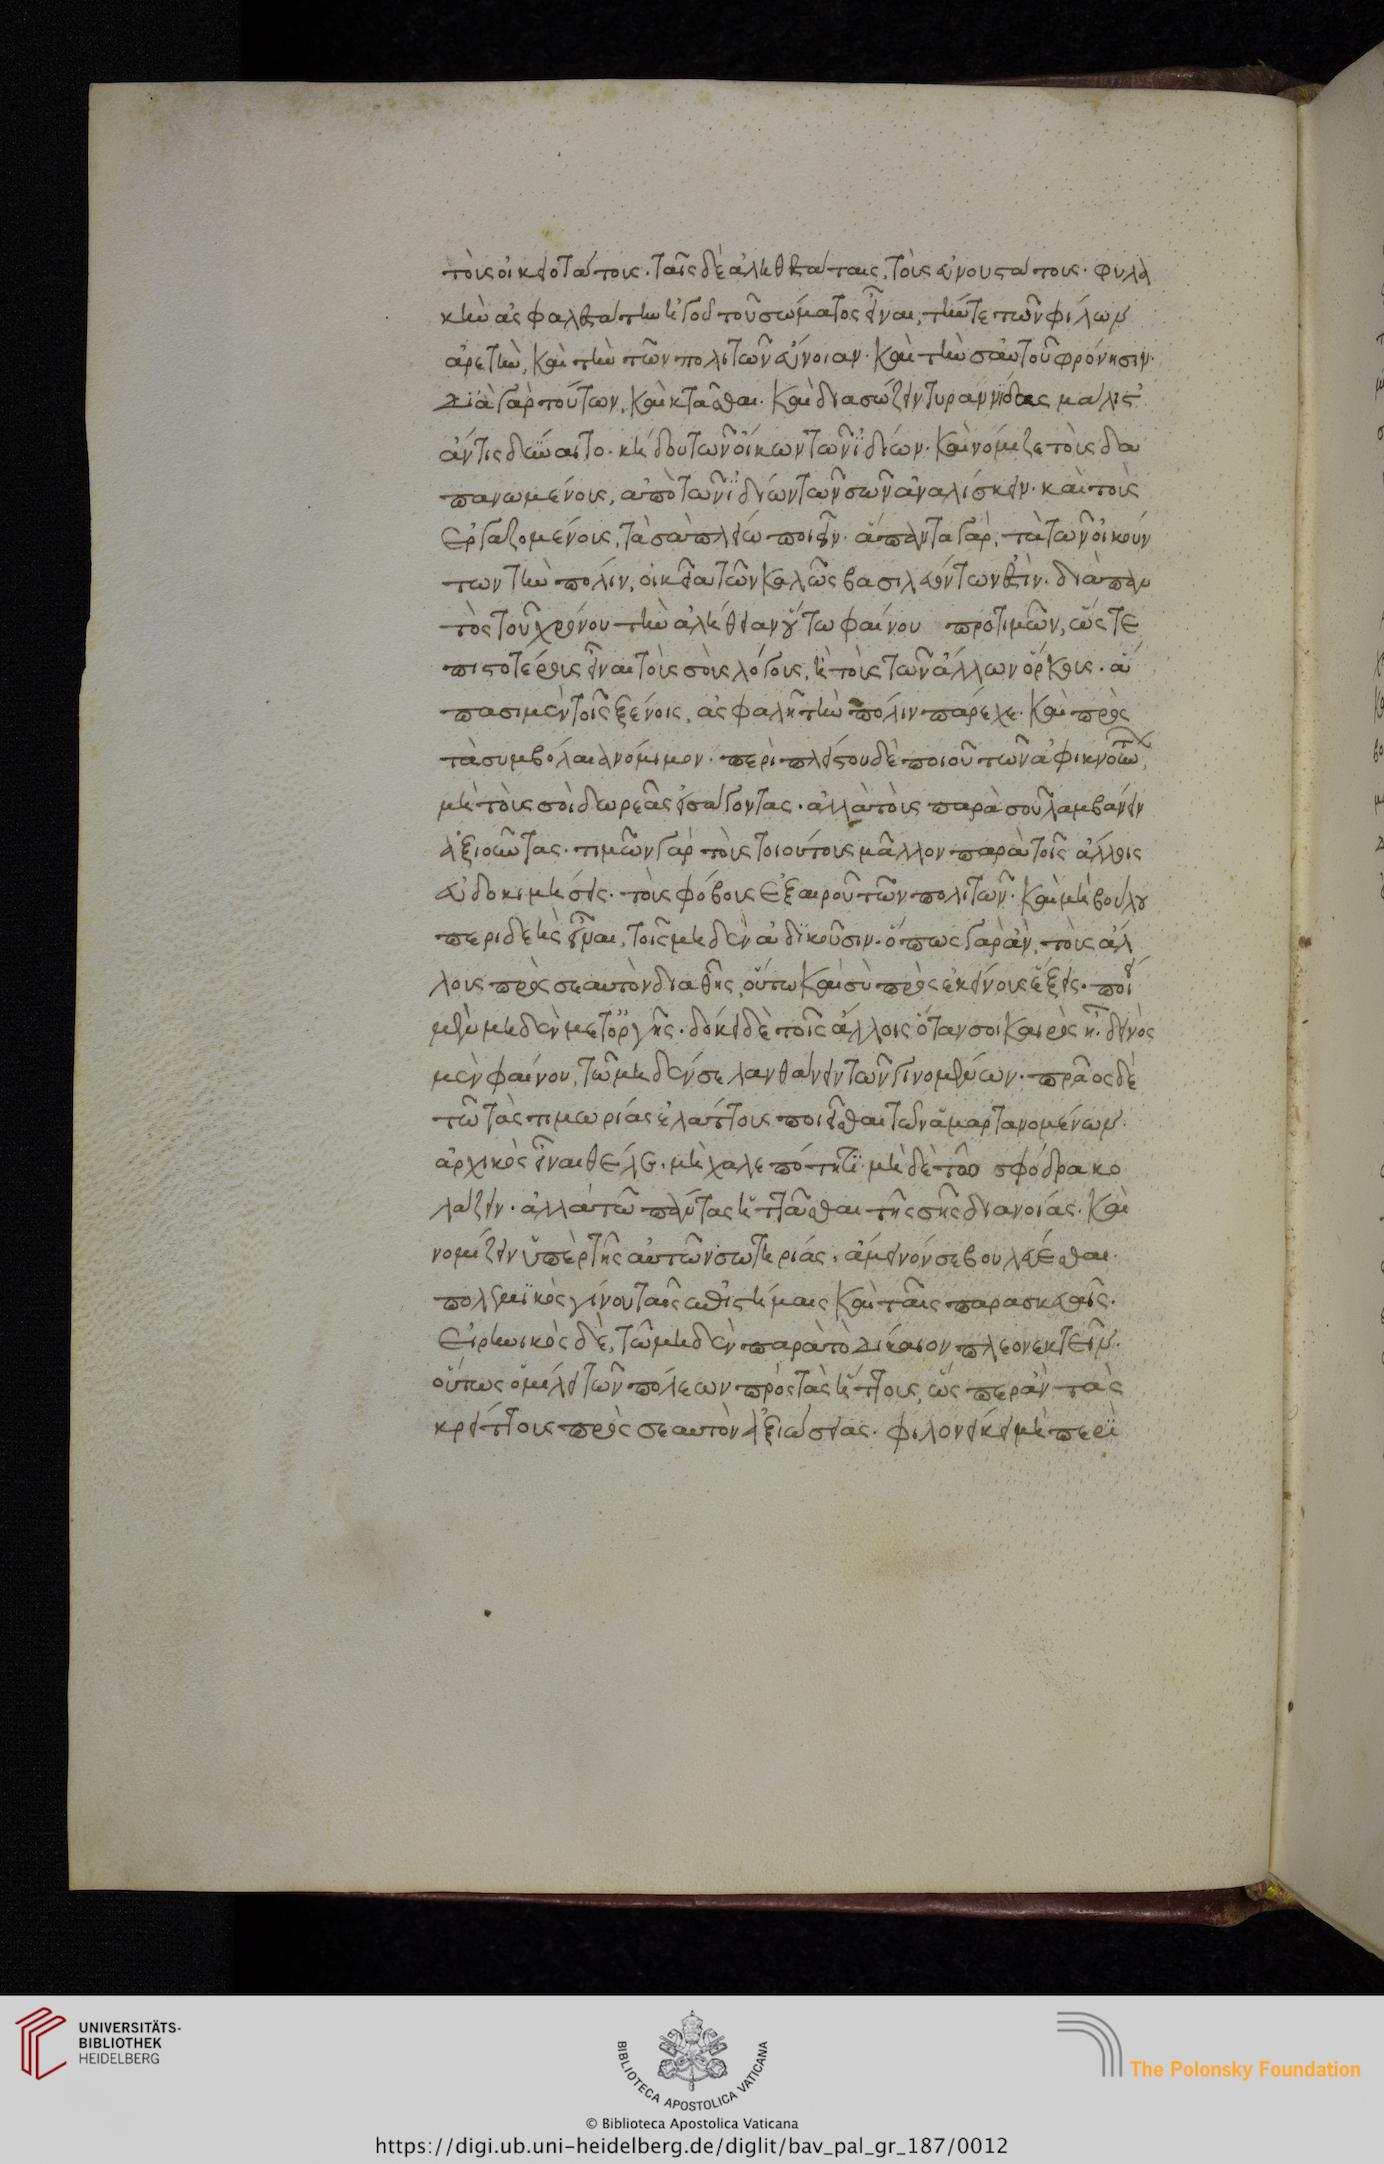 τοὺς οἰκειοτάτους. ταῖς δὲ ἀληθεστάταις, τοὺς εὐνουστάτους. φυλα
κὴν ἀσφαλεστάτην ἡγοῦ τοῦ σώματος εἶναι, τήν τε τῶν φίλων
ἀρετὴν, καὶ τὴν τῶν πολιτῶν εὔνοιαν. καὶ τὴν σαυτοῦ φρόνησιν.
διὰ γὰρ τούτων, καὶ κτᾶσθαι. καὶ διασώζειν τυραννίδας μάλιστ᾽
ἄν τις δύναιτο. κήδου τῶν οἴκων τῶν ἰδίων. καὶ νόμιζε τοὺς δα
πανωμένους, ἀπὸ τῶν ἰδίων τῶν σῶν ἀναλίσκειν. καὶ τοὺς
ἐργαζομένους, τὰ σὰ πλείω ποιεῖν. ἅπαντα γὰρ, τὰ τῶν οἰκούν
των τὴν πόλιν, οἰκεῖα τῶν καλῶς βασιλευόντων ἐστὶν. διὰ παν
τὸς τοῦ χρόνου τὴν ἀλήθειαν οὕτω φαίνου προτιμῶν, ὥστε
πιστοτέρους εἶναι τοὺς σοὺς λόγους, ἢ τοὺς τῶν ἄλλων ὅρκους. ἅ
πασι μὲν τοῖς ξένοις, ἀσφαλῆ τὴν πόλιν πάρεχε. καὶ πρὸς
τὰ συμβόλαια νόμιμον. περὶ πλείστου δὲ ποιοῦ τῶν ἀφικνουμένων,
μὴ τοὺς σοὶ δωρεὰς εἰσάγοντας. ἀλλὰ τοὺς παρὰ σοῦ λαμβάνειν
ἀξιοῦντας. τιμῶν γὰρ τοὺς τοιούτους μᾶλλον παρὰ τοῖς ἄλλοις
εὐδοκιμήσεις. τοὺς φόβους ἐξαιροῦ τῶν πολιτῶν. καὶ μὴ βούλου
περιδεὴς εἶναι, τοῖς μηδὲν ἀδικοῦσιν. ὅπως γὰρ ἂν, τοὺς ἄλ
λους πρὸς σεαυτὸν διαθῇς, οὕτω καὶ σὺ πρὸς ἐκείνους ἕξεις. ποίει
μὲν μηδὲν μετ᾽ ὀργῆς. δόκει δὲ τοῖς ἄλλοις ὅταν σοι καιρὸς ᾖ. δεινὸς
μὲν φαίνου, τῷ μηδέν σε λανθάνειν τῶν γινομένων. πρᾶος δὲ
τῷ τὰς τιμωρίας ἐλάττους ποιεῖσθαι τῶν ἁμαρτανομένων.
ἀρχικὸς εἶναι θέλε. μὴ χαλεπότητι μηδὲ τῷ σφόδρα κο
λάζειν. ἀλλὰ τῷ πάντας ἡττᾶσθαι τῆς σῆς διανοίας. καὶ
νομίζειν ὑπὲρ τῆς αὐτῶν σωτηρίας, ἄμεινόν σε βουλεύεσθαι.
πολεμϊκὸς γίνου ταῖς ἐπιστήμαις καὶ ταῖς παρασκευαῖς.
εἰρηνικὸς δὲ, τῷ μηδὲν παρὰ τὸ δίκαιον πλεονεκτεῖν.
οὕτως ὁμίλει τῶν πόλεων πρὸς τὰς ἥττους, ὥσπερ ἂν τὰς
κρείττους πρὸς σεαυτὸν ἀξιώσειας. φιλονείκει μὴ περὶ
UNIVERSITÄTS-
BIBLIOTHEK
HEIDELBERG
BIBLIOTECA APOSTOLICA VATICANA
The Polonsky Foundation
© Biblioteca Apostolica Vaticana
https://digi.ub.uni-heidelberg.de/diglit/bav_pal_gr_187/0012